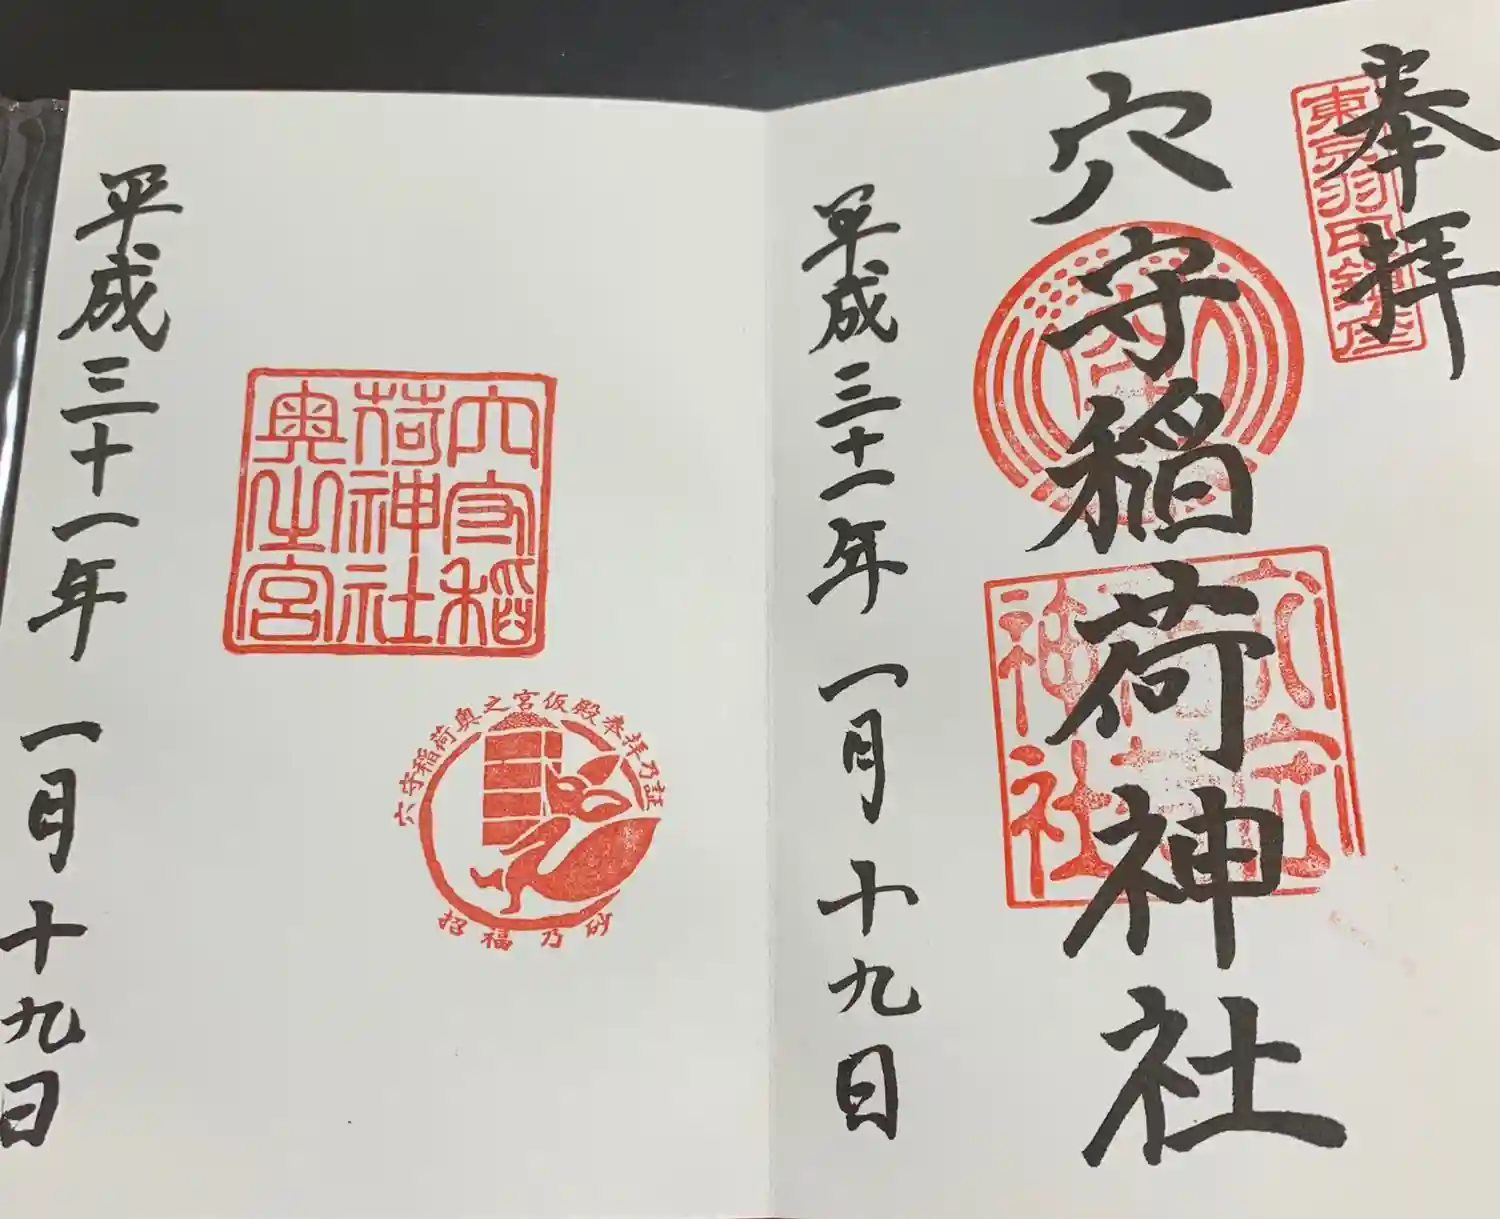 奉拝
東京羽田鎮座
穴守稲荷神社
穴守稲荷神社
平成三十一年 一月十九日
穴守稲
荷神社
奥之宮
穴守稲荷奥之宮仮殿奉拝乃証
招福乃砂
平成三十一年 一月十九日